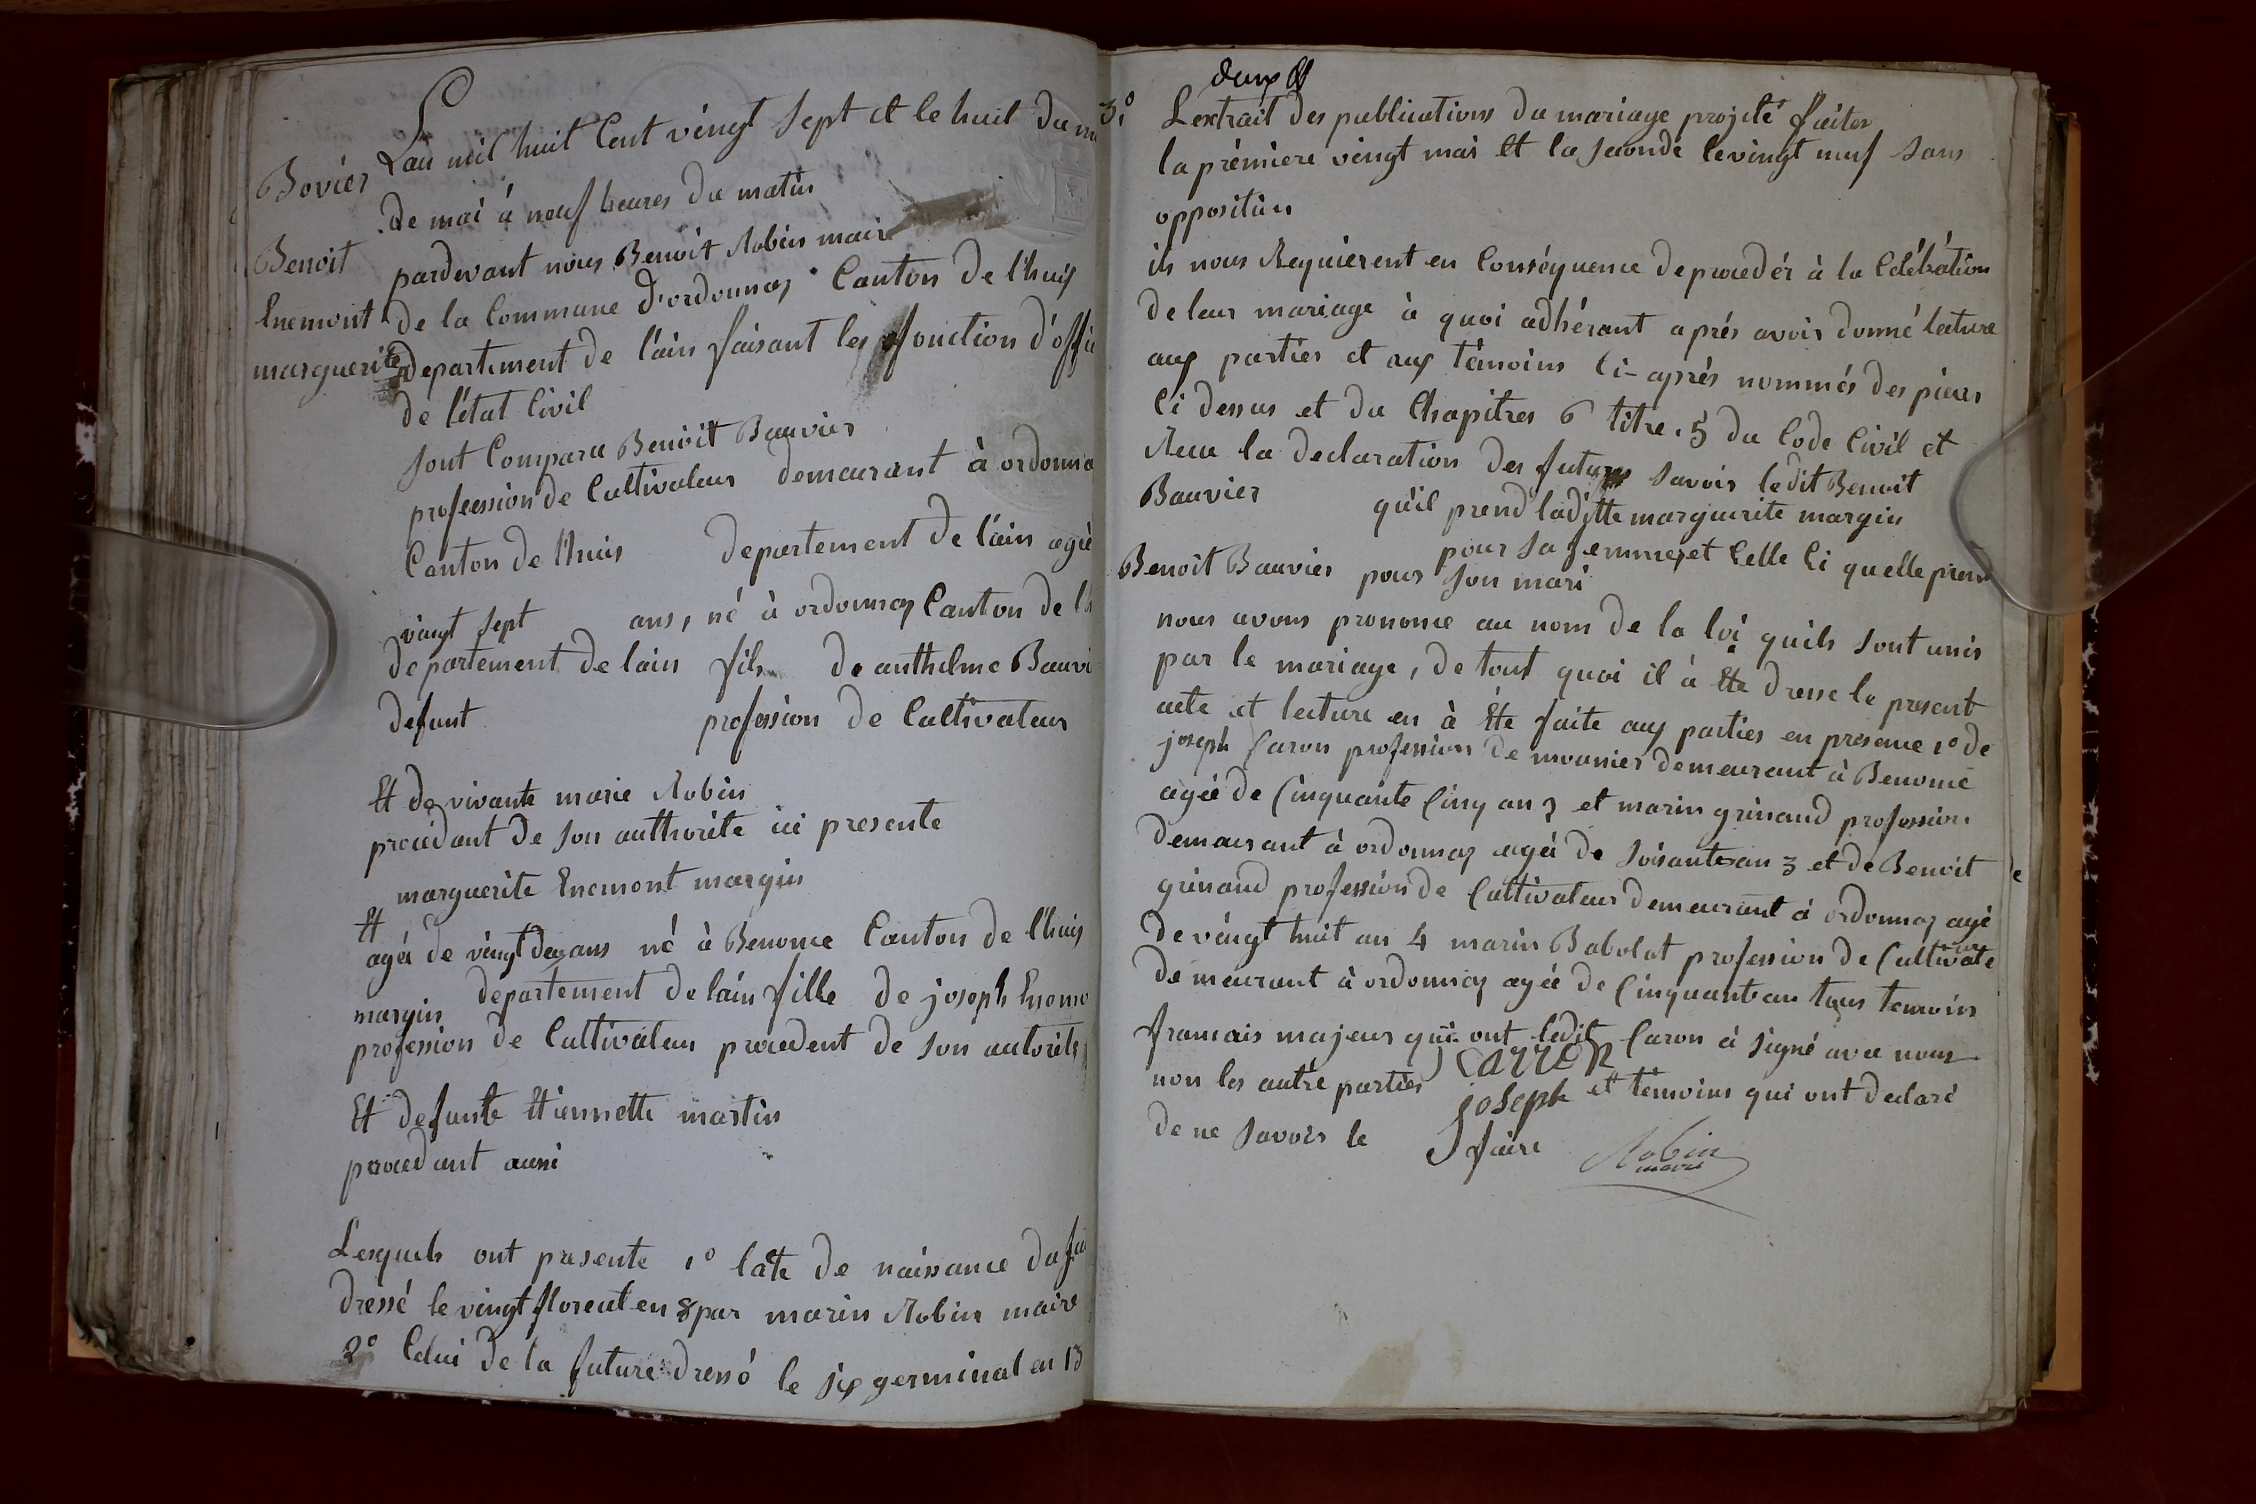 Bovier
Benoit
Enemont
marguerite
Lan mil huit Cent vingt Sept et le huit du
de mai à neuf heures du matin
pardevant nous Benoit Robin maire
de la Commune d'ordonnaz Canton de l'huis
departement de l'ain faisant les fonction d'offi
de l'état Civil
sont Comparu Benoit Bauvier
profeession de Cultivateur demeurant à ordonna
Canton de l'huis departement de l'ain agé
vingt sept ans, né à ordonnaz Canton de l'h
departement de lain fils de anthelme Bauvi
defunt profession de Cultivateur
Et de vivante marie Robin
procedant de son authorite ici presente
Et marguerite Enemont margin
agée de vingt deux ans né à Benonce Canton de l'huis
departement de l'ain fille de joseph Enemo
margin
profession de Cultivateur procedent de son autorité
Et defunte Etiennette martin
procedant aussi
Lesquels ont presente 1° late de naissance du fu
dressé le vingt floreal en 8 par marin Robin maire
2° Celui de la future dressé le six germinal en 13
deux
3° Lextrait des publications du mariage projeté faites
la prémiere vingt mai et la seconde le vingt neuf sans
opposition
ils nous Requierent en Conséquence de procedér à la Célébration
de leur mariage à quoi adhérant aprés avoir donné lecture
aux parties et aux témoins Ci-aprés nommés des pieces
Ci dessus et du Chapitres 6 titre. 5 du Code Civil et
Recu la declaration des futurs savoir ledit Benoit
Bauvier qu'il prend ladite marguerite margin
pour sa femme, et Celle Ci quelle prend
Benoit Bauvier pour son mari
nous avons prononce au nom de la loi quils sont unis
par le mariage, de tout quoi il à Ete dresse le present
acte et lecture en à Ete faite aux parties en presence 1° de
joseph Caron profession de mounier demeurant à Benonce
agée de Cinquante Cinq an 2 et marin grinand profession de
demeurant à ordonnaz agée de soisante an 3 et de Benoit
grinand profession de Cultivateur demeurant à ordonnaz agé
de vingt huit an 4 marin Babolat profession de Cultivateur
demeurant à ordonnaz agée de Cinquante an tous temoins
francais majeur qui ont ledit Caron à signé avec nous
non les autre parties et témoins qui ont declaré
de ne savoir le faire
Carron
joseph
Robin
maire